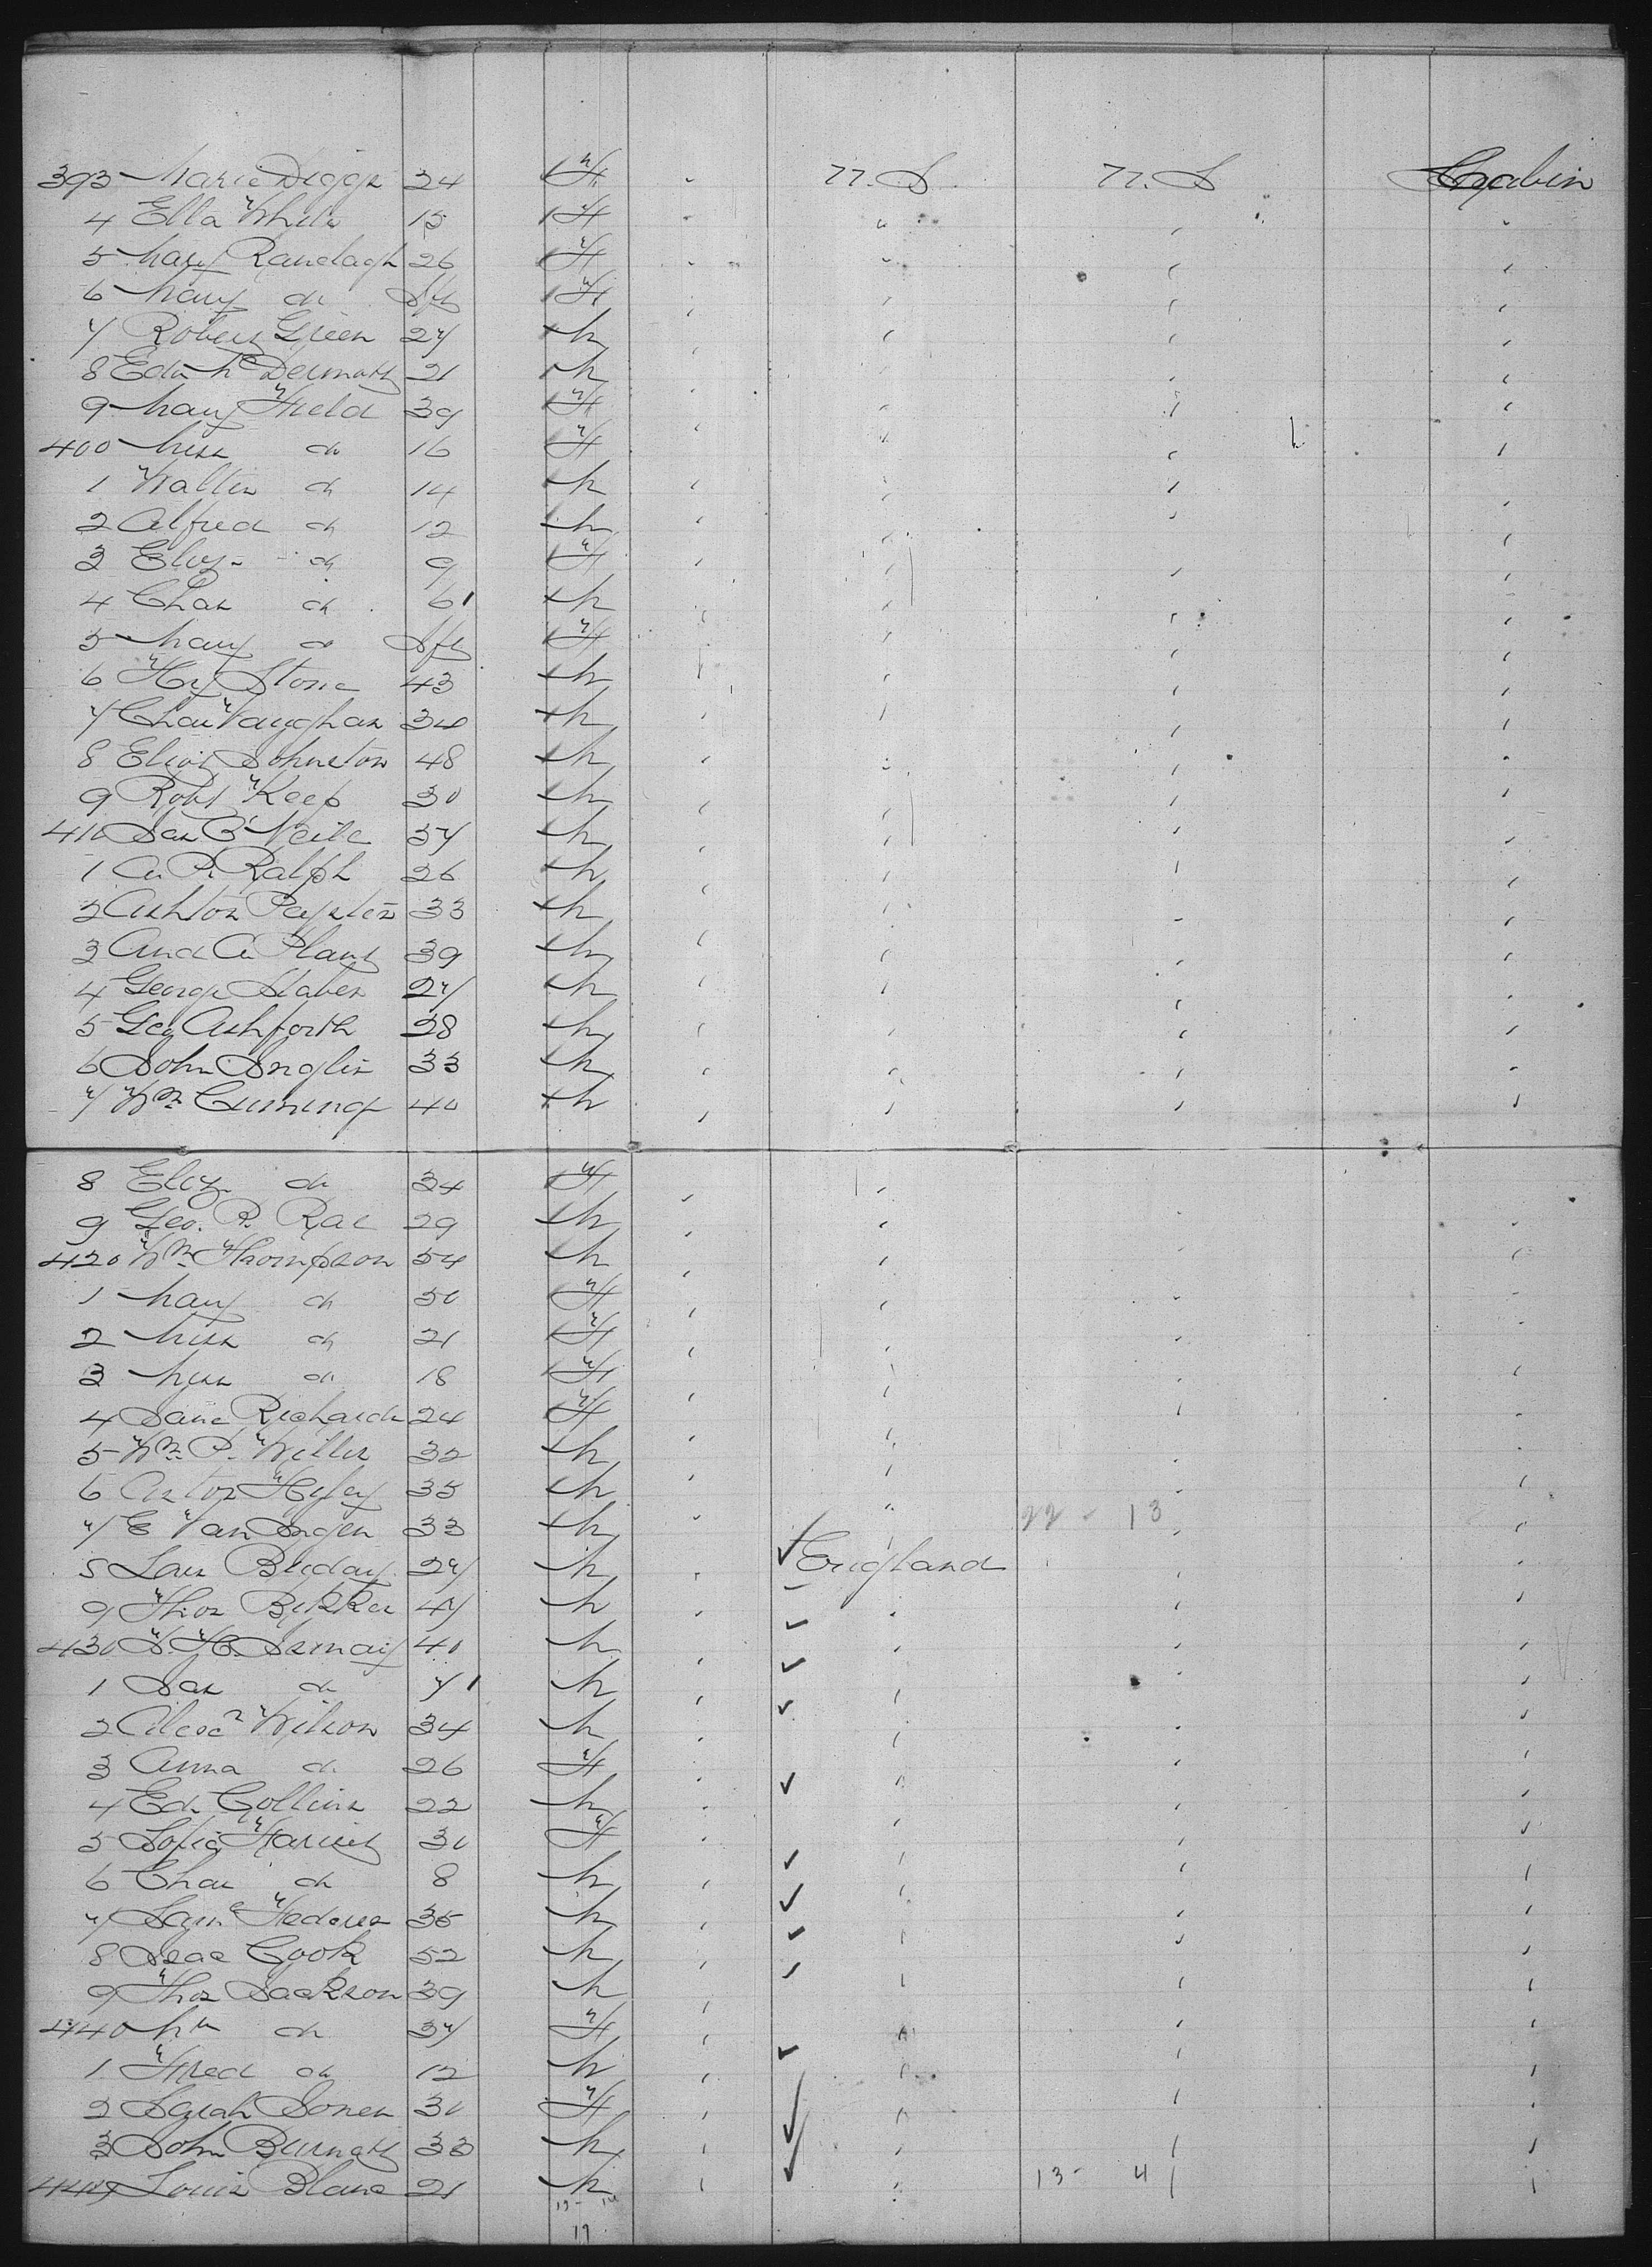 393 Marie Diggs 24 F " U.S U.S Cabin
4 Ella White 15 F
5 Mary 26 F
6 Mary do Inft F
7 Robert Green 27 M
8 Edw McDermott 21 M
9 Mary Field 39 F
400 Miss do 16 F
1 Walter do 14 M
2 Alfred do 12 M
3 Eliz. do 9 F
4 Chas do 6 M
5 Mary do Inft F
6 Hy Stone 43 M
7 Chas Vaughan 34 M
8 Eliot Johnston 48 M
9 Robt Keep 30 M
410 Jas O'Neile 37 M
1 A. P. Ralph 26 M
2 Ashton 33 M
3 And A. Plant 39 M
4 George 27 M
5 Geo Ashforth 28 M
6 John Inglis 33 M
7 Wm Cuming 40 M
8 Eliz do 34 F
9 Geo. R. Rae 29 M
420 Wm Thompson 54 M
1 Mary do 50 F
2 Miss do 21 F
3 Miss do 18 F
4 Jane Richards 24 F
5 Wm P. Willis 32 M
6 Anton 35 M
7 E Van Ingen 33 M 22 - 13
8 27 M England
9 Thos 47 M
430 40 M
1 Jas do 7 M
2 Alexr Wilson 34 M
3 Anna do 26 F
4 Ed. Collins 22 M
5 Sofia 30 F
6 Chas do 8 M
7 Saml 35 M
8 Isac Cook 52 M
9 Thos Jackson 39 M
440 Mrs do 37 F
1 Fred do 12 M
2 Sarah Jones 30 F
3 John Burnett 33 M
444 Louis Blanc 21 M 13 - 4
17